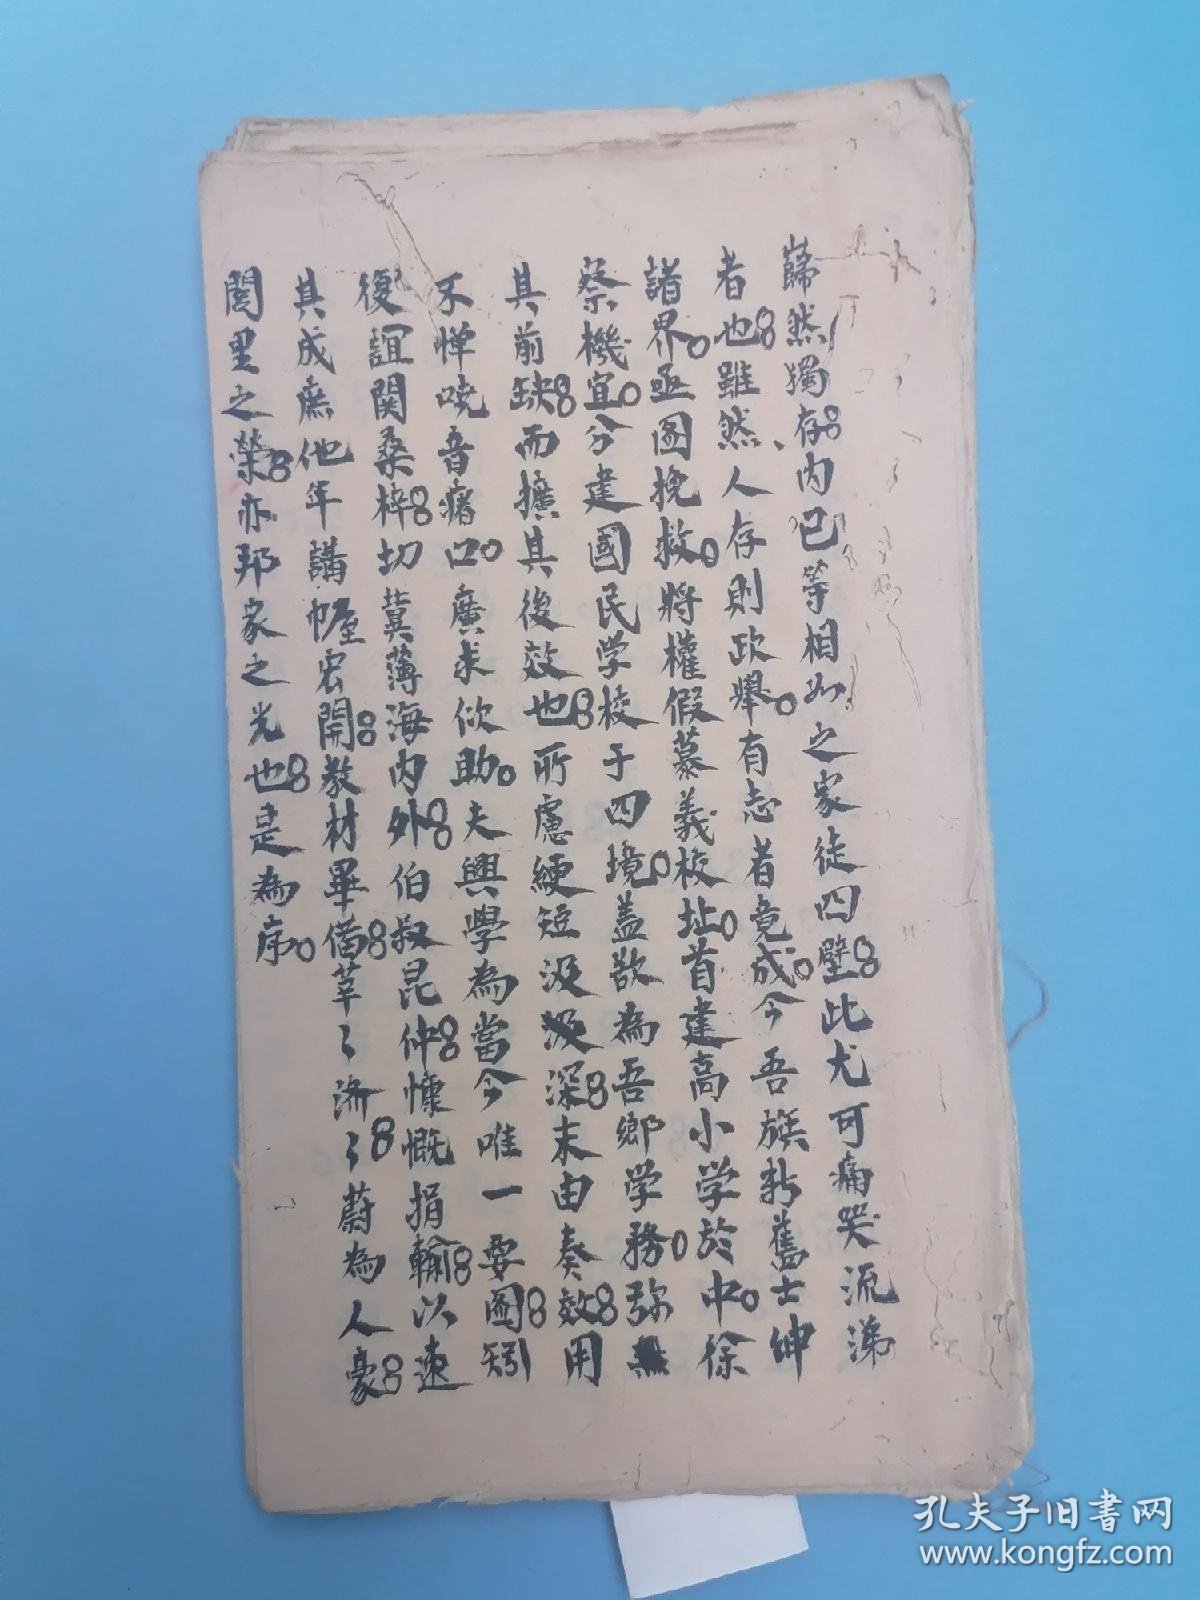 巋然獨存內已等相如之家徒四壁此尤可痛哭流涕
者也雖然人存則政舉有志者竟成今吾族新舊士紳
諸界亟图挽救將權假慕義校址首建高小学於中徐
蔡機宜分建國民学校于四境蓋欲為吾鄉学務弥
其前缺而擴其後效也所慮綆短汲深末由奏效用
不惮哓音瘏口廣求佽助夫興學為當今唯一要圖矧
復誼関桑梓切冀薄海内外伯叔昆仲慷慨捐輸以速
其成庶他年講幄宏開教材畢備莘〻济〻蔚為人豪
閭里之榮亦邦家之光也是為序
孔夫子旧书网
www.kongfz.com